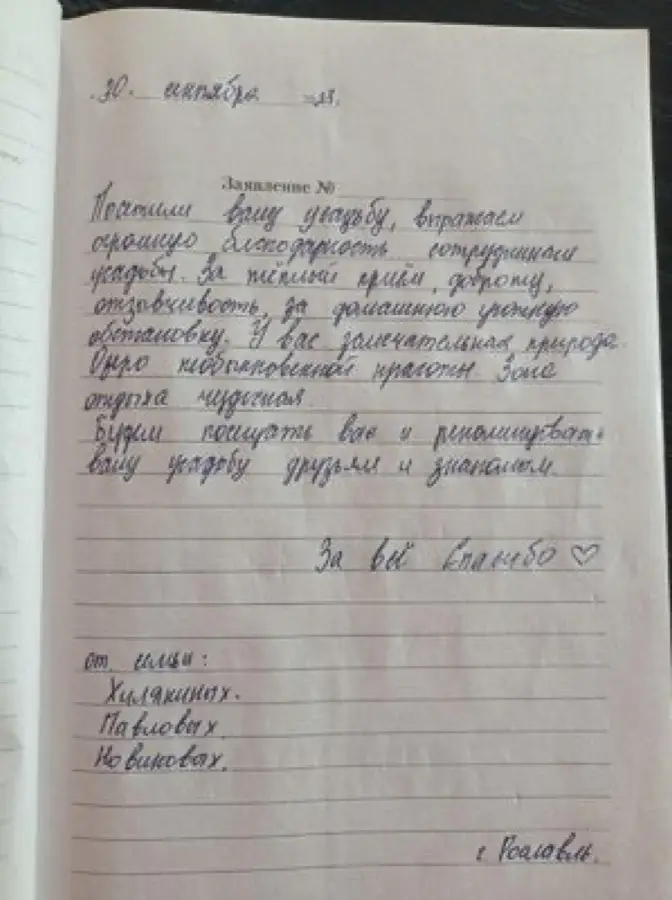 30. сентября 23.
Заявление №
Посетили вашу усадьбу, выражаем
огромную благодарность сотрудникам
усадьбы. За тёплый приём, доброту,
отзывчивость, за домашнюю уютную
обстановку. У вас замечательная природа.
Озеро необыкновенной красоты. Зона
отдыха чудесная.
Будем посещать вас и рекомендовать
вашу усадьбу друзьям и знакомым.
За всё Спасибо ♡
от семьи:
Хилякиных.
Павловых
Новиковых.
г. Рославль.